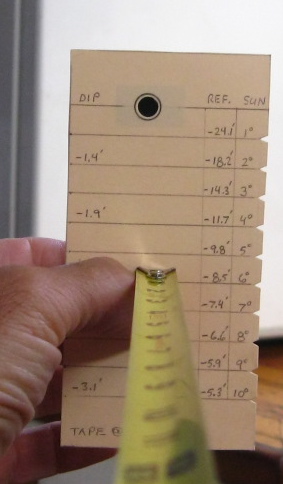 DIP REF. SUN
-24.1' 1°
-1.4' -18.2' 2°
-14.3' 3°
-1.9' -11.7' 4°
-9.8' 5°
-8.5' 6°
-7.4' 7°
-6.6' 8°
-5.9' 9°
-3.1' -5.3' 10°
TAPE @